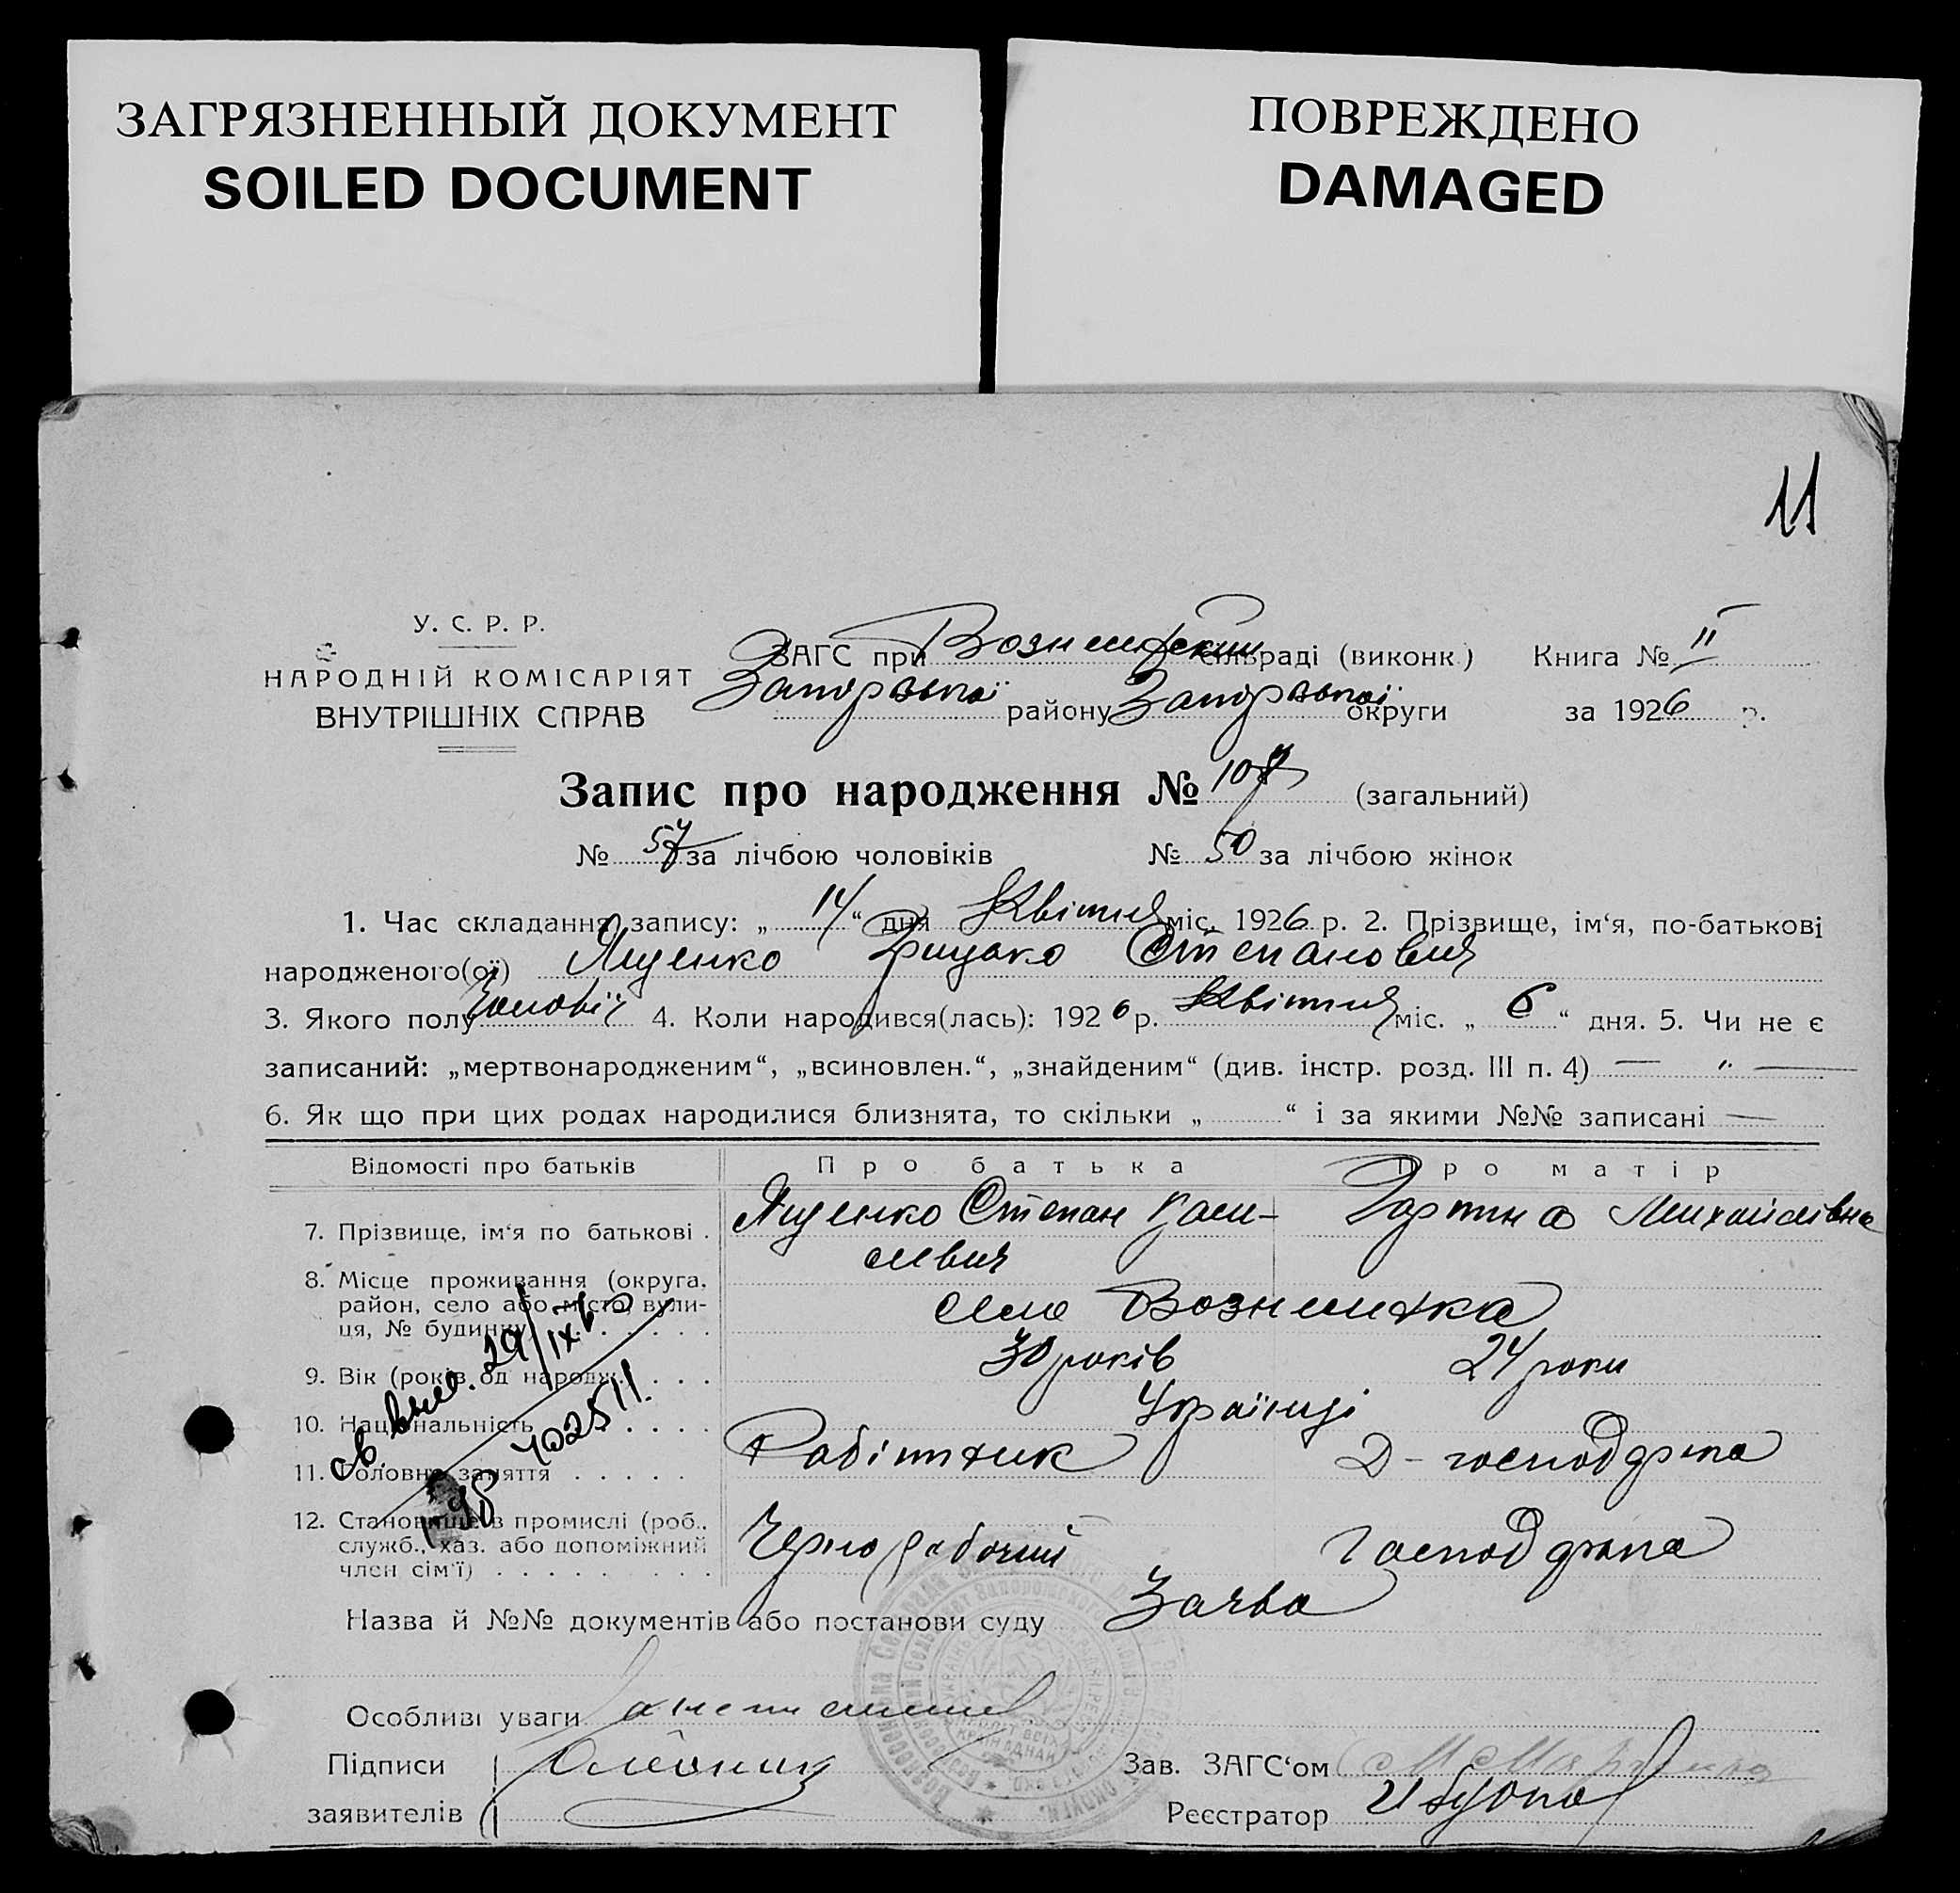 ЗАГРЯЗНЕННЫЙ ДОКУМЕНТ
SOILED DOCUMENT
ПОВРЕЖДЕНО
DAMAGED
11
У. С. Р. Р.
НАРОДНІЙ КОМІСАРІЯТ
ВНУТРІШНІХ СПРАВ
ЗАГС при сільраді (виконк.) Книга № II
Запорізької району Запорізької округи за 1926 р.
Запис про народження № 107 (загальний)
№ 57 за лічбою чоловіків № 50 за лічбою жінок
1. Час складання запису: „14“ дня Квітня міс. 1926 р. 2. Прізвище, ім‘я, по-батькові
народженого(ої) Ященко Грицько Степанович
3. Якого полу чоловіч 4. Коли народився(лась): 1926 р. Квітня міс. „6“ дня. 5. Чи не є
записаний: „мертвонародженим“, „всиновлен.“, „знайденим“ (див. інстр. розд. III п. 4) — „ —
6. Як що при цих родах народилися близнята, то скільки „ “ і за якими №№ записані —
Відомості про батьків Про батька Про матір
7. Прізвище, ім‘я по батькові . Ященко Степан Васи- Михайлівна
левич
8. Місце проживання (округа,
район, село або місто, вули-
ця, № будинку) село Вознесенка
9. Вік (років од народж.) 30 років 24 роки
10. Національність Українці
11. Головне заняття Робітник Д-господарка
12. Становище в промислі (роб.,
служб., хаз. або допоміжний
член сім‘ї) Чернорабочий Господарка
Назва й №№ документів або постанови суду Заява
Особливі уваги
Підписи
заявителів
Зав. ЗАГС‘ом
Реєстратор
29/IX
402511